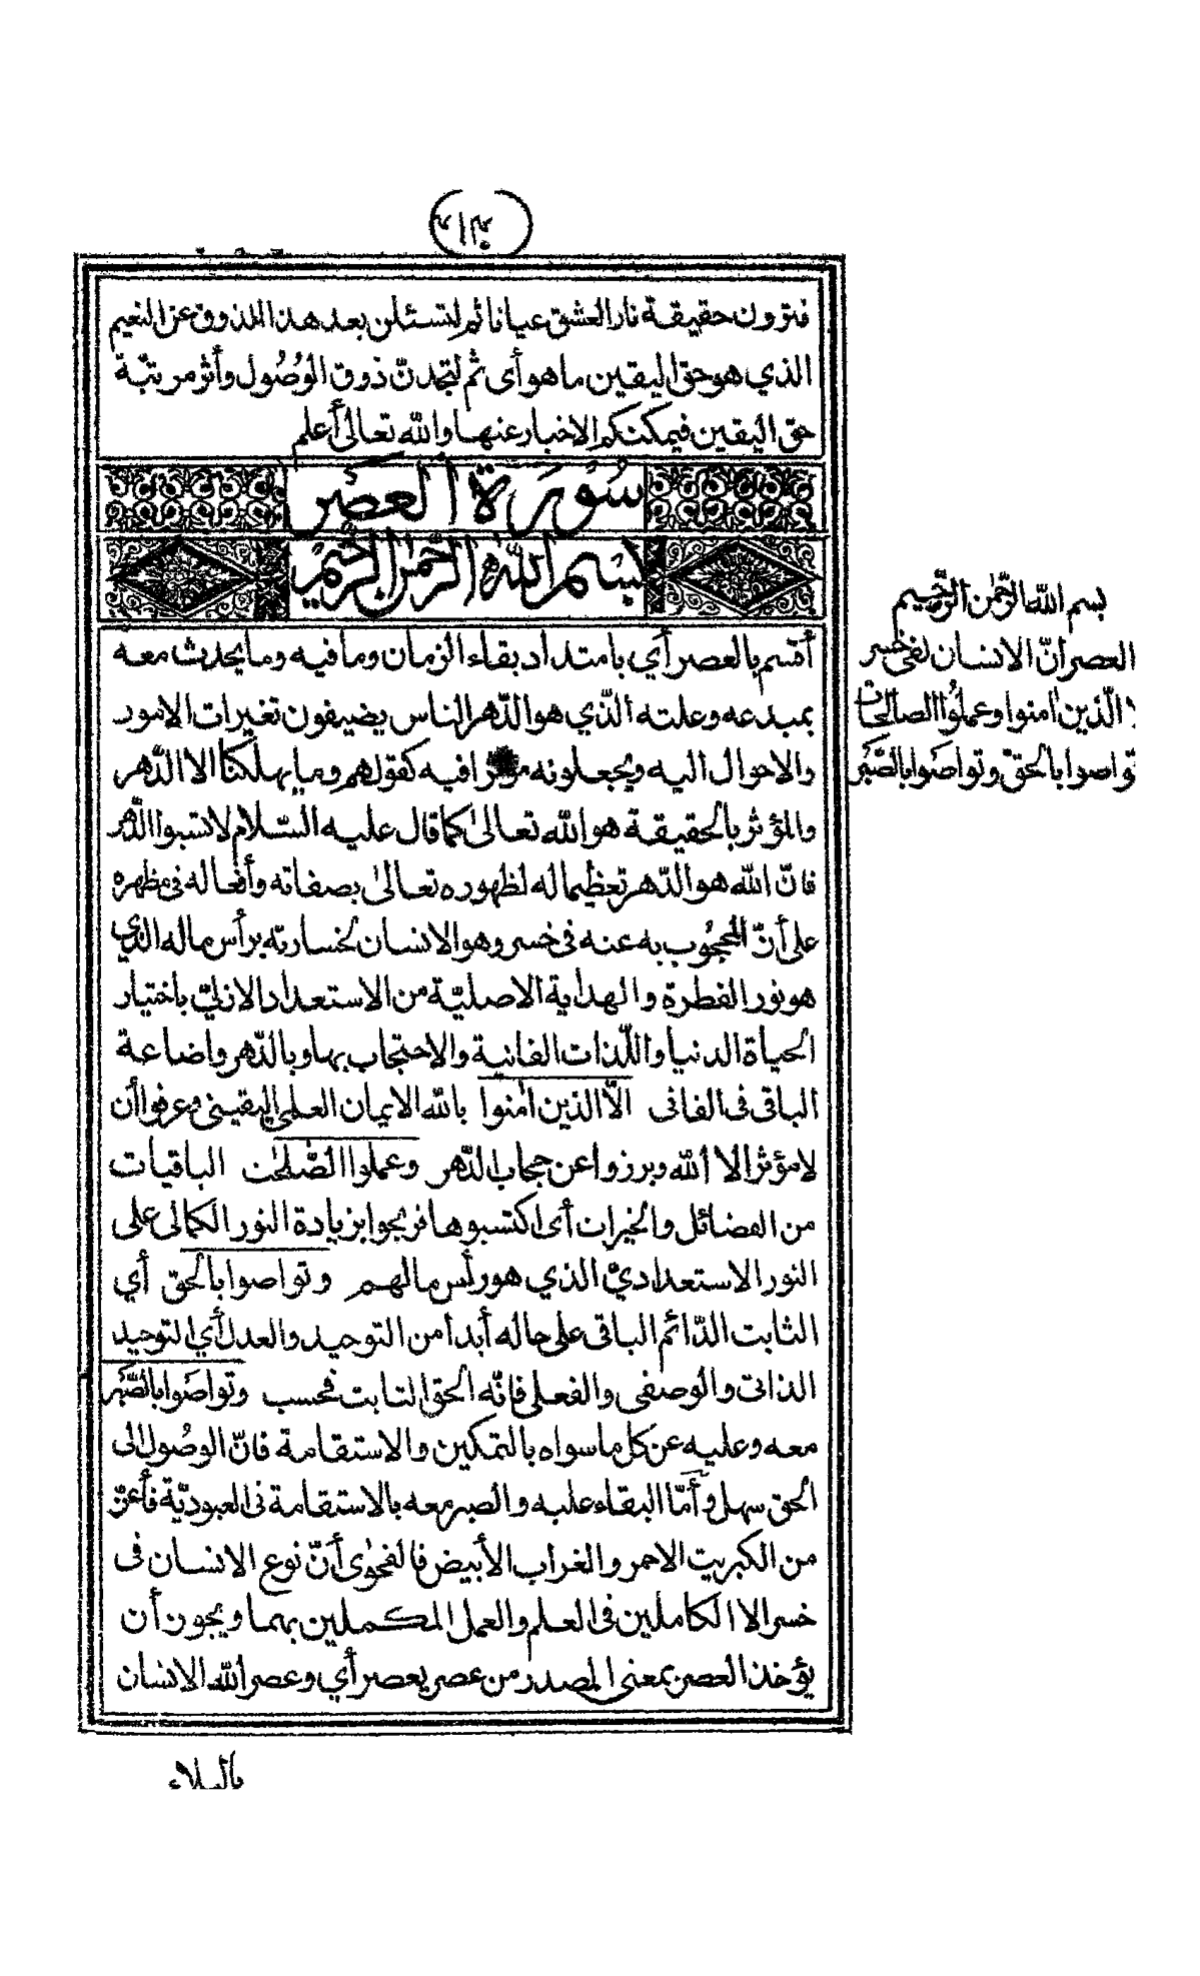 فترون حقيقة نار العشق عيانا ثم لتسئلن بعد هذا الذوق عن النعيم
الذي هو حق اليقين ما هو أى ثم لتجدنّ ذوق الوُصُول وأثر مرتبّة
حق اليقين فيمكنكم الاخبار عنها والله تعالى أعلم
سُورَة العصر
بسم الله الرحمن الرحيم
أقسم بالعصر أي بامتداد بقاء الزمان وما فيه وما يحدث معه
بمبدعه وعلته الّذي هو الدّهر الناس يضيفون تغيرات الامور
والاحوال اليه ويجعلونه مؤثرا فيه كقولهم وما يهلكنا الا الدّهر
والمؤثر بالحقيقة هو الله تعالى كما قال عليه السّلام لا تسبوا الدّهر
فانّ الله هو الدّهر تعظيما له لظهوره تعالى بصفاته وأفعاله فى مظهره
على أنّ المحجُوب به عنه فى خسر وهو الانسان لخسارته برأس ماله الذي
هو نور الفطرة والهداية الاصليّة من الاستعداد الازليّ باختيار
الحياة الدنيا واللّذات الفانية والاحتجاب بها وبالدّهر واضاعة
الباقى فى الفانى الاّ الذين اٰمنوا بالله الايمان العلمي اليقيني وعرفوا أن
لا مؤثر الا الله وبرزوا عن حجاب الدّهر وعملوا الصّٰلحٰت الباقيات
من الفضائل والخيرات أى اكتسبوها فربحوا بزيادة النور الكمالى على
النور الاستعداديّ الذي هو رأس مالهم وتواصوا بالحقّ أي
الثابت الدّائم الباقى على حاله أبدا من التوحيد والعدل أي التوحيد
الذاتى والوصفى والفعلى فانّه الحق الثابت فحسب وتواصَوا بالصَّبر
معه وعليه عن كل ما سواه بالتمكين والاستقامة فانّ الوصُول الى
الحق سهل وأمّا البقاء عليه والصبر معه بالاستقامة فى العبوديّة فأعزّ
من الكبريت الاحمر والغراب الأبيض فالفحوٰى أنّ نوع الانسان فى
خسر الا الكاملين فى العلم والعمل المكملين بهما ويجوز أن
يؤخذ العصر بمعنى المصدر من عصر يعصر أي وعصر الله الانسان
بالبلاء
بسم الله الرّحمٰن الرّحيم
العصر انّ الانسان لفى خسر
الّذين اٰمنوا وعملُوا الصالحات
تواصوا بالحقّ وتواصَوا بالصَّبْر